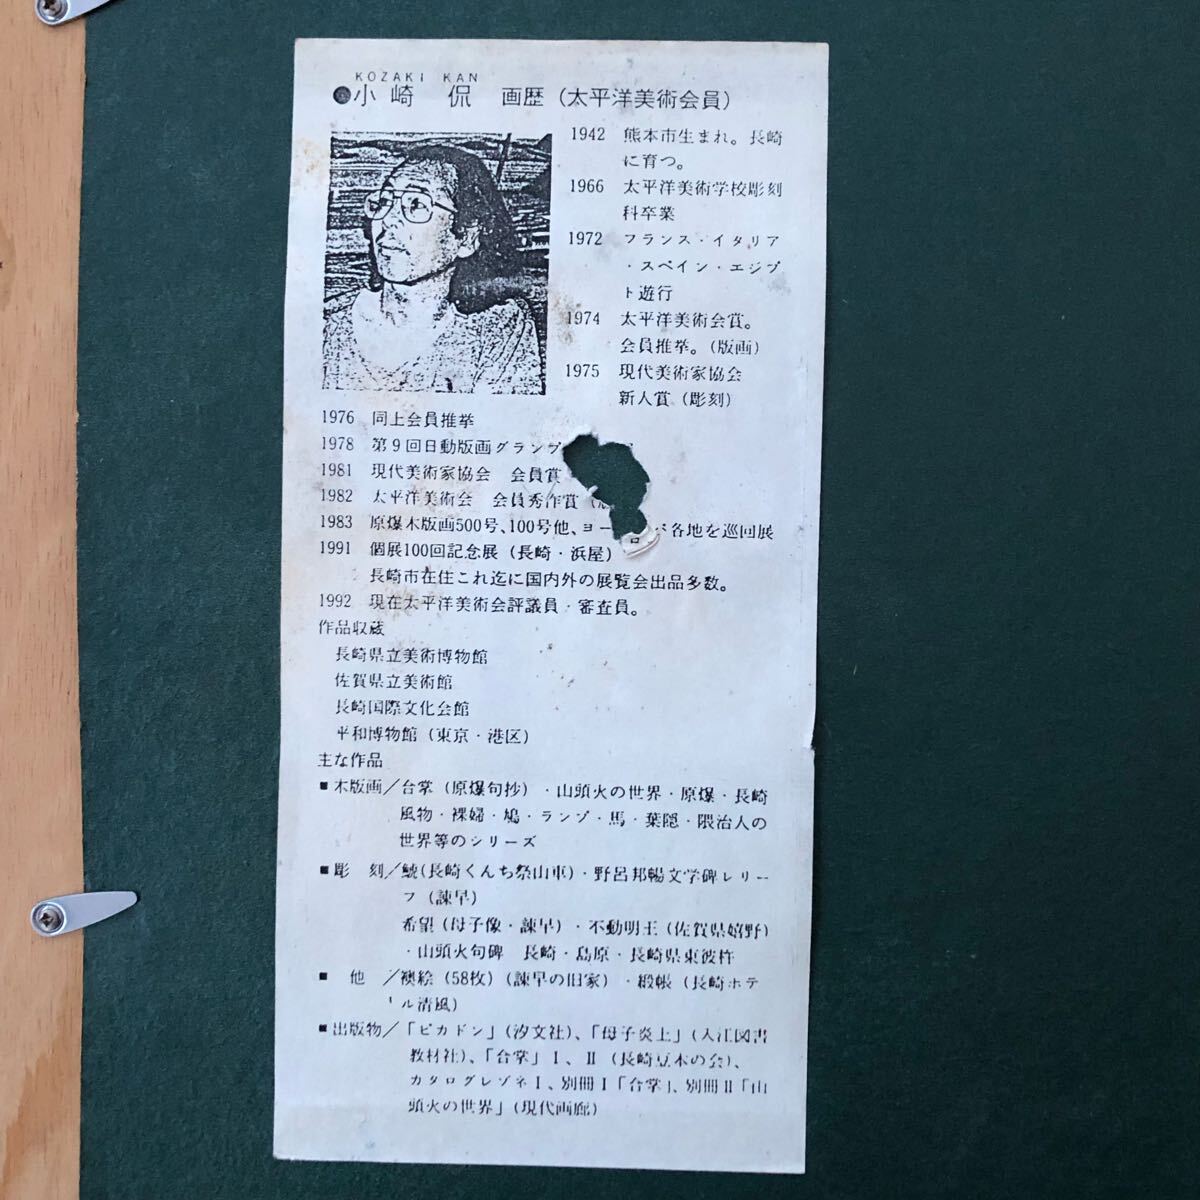 KOZAKI KAN
●小崎 侃 画歴（太平洋美術会員）
1942 熊本市生まれ。長崎
に育つ。
1966 太平洋美術学校彫刻
科卒業
1972 フランス・イタリア
・スペイン・エジプ
ト遊行
1974 太平洋美術会賞。
会員推挙。（版画）
1975 現代美術家協会
新人賞（彫刻）
1976 同上会員推挙
1978 第9回日動版画グランプ
1981 現代美術家協会 会員賞
1982 太平洋美術会 会員秀作賞（
1983 原爆木版画500号、100号他、ヨー 各地を巡回展
1991 個展100回記念展（長崎・浜屋）
長崎市在住これ迄に国内外の展覧会出品多数。
1992 現在太平洋美術会評議員・審査員。
作品収蔵
長崎県立美術博物館
佐賀県立美術館
長崎国際文化会館
平和博物館（東京・港区）
主な作品
■木版画／合掌（原爆句抄）・山頭火の世界・原爆・長崎
風物・裸婦・鳩・ランプ・馬・葉隠・隈治人の
世界等のシリーズ
■彫 刻／鯱（長崎くんち祭山車）・野呂邦暢文学碑レリー
フ（諫早）
希望（母子像・諫早）・不動明王（佐賀県嬉野）
・山頭火句碑 長崎・島原・長崎県東彼杵
■ 他 ／襖絵（58枚）（諫早の旧家）・緞帳（長崎ホテ
ル清風）
■出版物／「ピカドン」（汐文社）、「母子炎上」（入江図書
教材社）、「合掌」Ⅰ、Ⅱ（長崎豆本の会）、
カタログレゾネⅠ、別冊Ⅰ「合掌」、別冊Ⅱ「山
頭火の世界」（現代画廊）